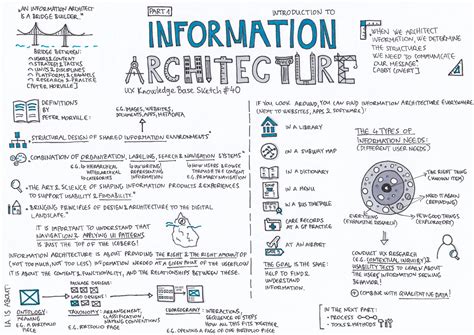 PART 1
INTRODUCTION TO
INFORMATION
ARCHITECTURE
UX KNOWLEDGE BASE SKETCH #40
"AN INFORMATION ARCHITECT
IS A BRIDGE BUILDER."
BRIDGE BETWEEN:
USERS & CONTENT
STRATEGY & TACTICS
UNITS & DISCIPLINES
PLATFORMS & CHANNELS
RESEARCH & PRACTICE
(PETER MORVILLE)
"WHEN WE ARCHITECT
INFORMATION, WE DETERMINE
THE STRUCTURES
WE NEED TO
COMMUNICATE
OUR MESSAGE."
(ABBY COVERT)
DEFINITIONS
BY
(PETER MORVILLE):
E.G. IMAGES, WEBSITES,
DOCUMENTS, APPS, METADATA
STRUCTURAL DESIGN OF SHARED INFORMATION ENVIRONMENTS
COMBINATION OF ORGANIZATION, LABELING, SEARCH & NAVIGATION SYSTEMS
E.G. HIERARCHICAL
CATEGORIES
REPRESENTING
CATEGORIES
E.G. HOW USERS BROWSE
THROUGH THE CONTENT
THE ART & SCIENCE OF SHAPING INFORMATION PRODUCTS & EXPERIENCES
TO SUPPORT USABILITY & FINDABILITY
BRINGING PRINCIPLES OF DESIGN & ARCHITECTURE TO THE DIGITAL
LANDSCAPE.
IT IS IMPORTANT TO UNDERSTAND THAT
NAVIGATION & APPLYING UI PATTERNS
IS JUST THE TOP OF THE ICEBERG!
INFORMATION ARCHITECTURE IS ABOUT PROVIDING THE RIGHT & THE RIGHT AMOUNT OF
(NOT TOO MUCH, NOT TOO LESS) INFORMATION NEEDED AT A GIVEN POINT OF THE USERFLOW
IT IS ABOUT THE CONTENT & FUNCTIONALITY, AND THE RELATIONSHIPS BETWEEN THESE.
IA IS ABOUT:
LOGO DESIGNS
ONTOLOGY
MEANING
E.G. PORTFOLIO PAGE
TAXONOMY
ARRANGEMENT,
CLASSIFICATION,
NAMING CONVENTIONS
CHOREOGRAPHY
INTERACTIONS,
SEQUENCE OF STEPS
HOW ALL THIS FITS TOGETHER
E.G. OPENING A PAGE OF ONE PORTFOLIO PROJECT
IF YOU LOOK AROUND, YOU CAN FIND INFORMATION ARCHITECTURE EVERYWHERE
(NEXT TO WEBSITES, APPS & SOFTWARE):
IN A LIBRARY
IN A SUBWAY MAP
IN A DICTIONARY
IN A MENU
IN A BUS TIMETABLE
CARE RECORDS
AT A GP PRACTICE
AT AN AIRPORT
THE GOAL IS THE SAME:
HELP TO FIND &
UNDERSTAND
INFORMATION.
THE 4 TYPES OF
INFORMATION NEEDS:
(DIFFERENT USER NEEDS)
THE RIGHT THING
(KNOWN ITEM)
EVERYTHING
(EXHAUSTIVE
RESEARCH)
A FEW GOOD THINGS
(EXPLORATORY)
CONDUCT UX RESEARCH
(E.G. CONTEXTUAL INQUIRY) &
USABILITY TESTS TO LEARN ABOUT
THE USERS' INFORMATION SEEKING
BEHAVIOR!
COMBINE WITH QUALITATIVE DATA!
IN THE NEXT PART:
PROCESS
TOOLS